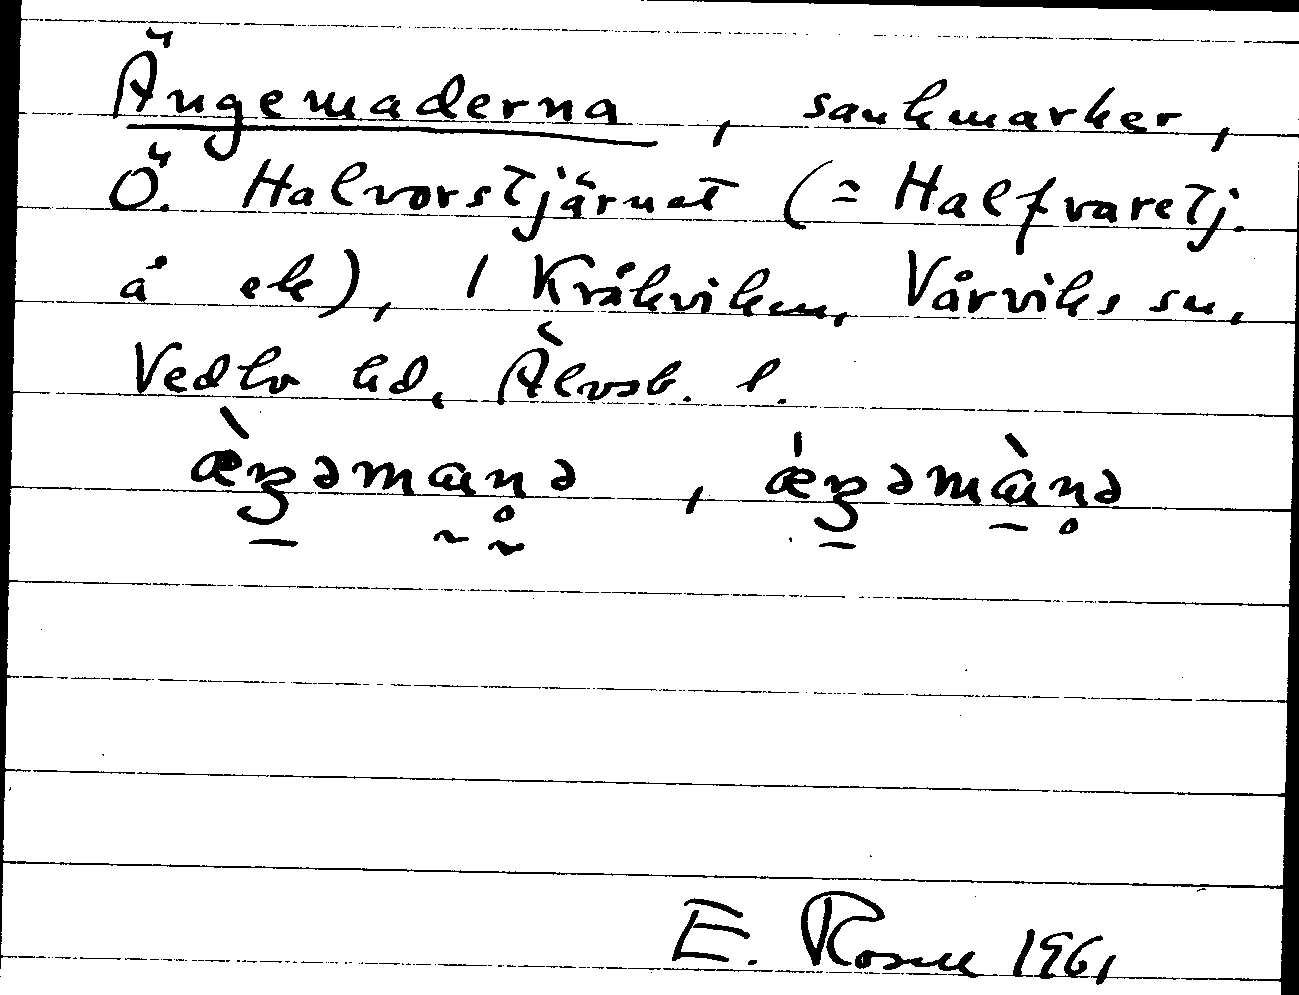 Ängemaderna, sankmarker,
Ö. Halvorstjärnet (= Halfvaretj.
å ek), 1 Kråkviken, Vårviks sn,
Vedbo hd, Älvsb. l.
æ̀ŋəmanə, ǽŋəmànə
E. Rosell 1961